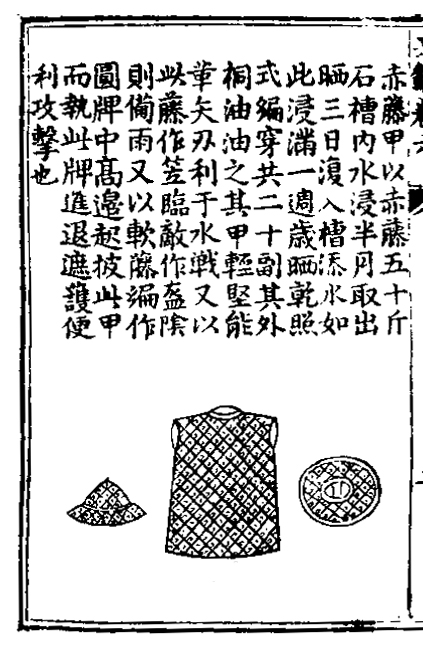 赤藤甲以赤藤五十斤
石槽內水浸半月取出
晒三日復入槽添水如
此浸滿一週歲晒乾照
式編穿共二十副其外
桐油油之其甲輕堅能
革矢刃利于水戰又以
此藤作笠臨敵作盔陰
則備雨又以軟藤編作
圓牌中高邊起披此甲
而執此牌進退遮護便
利攻擊也